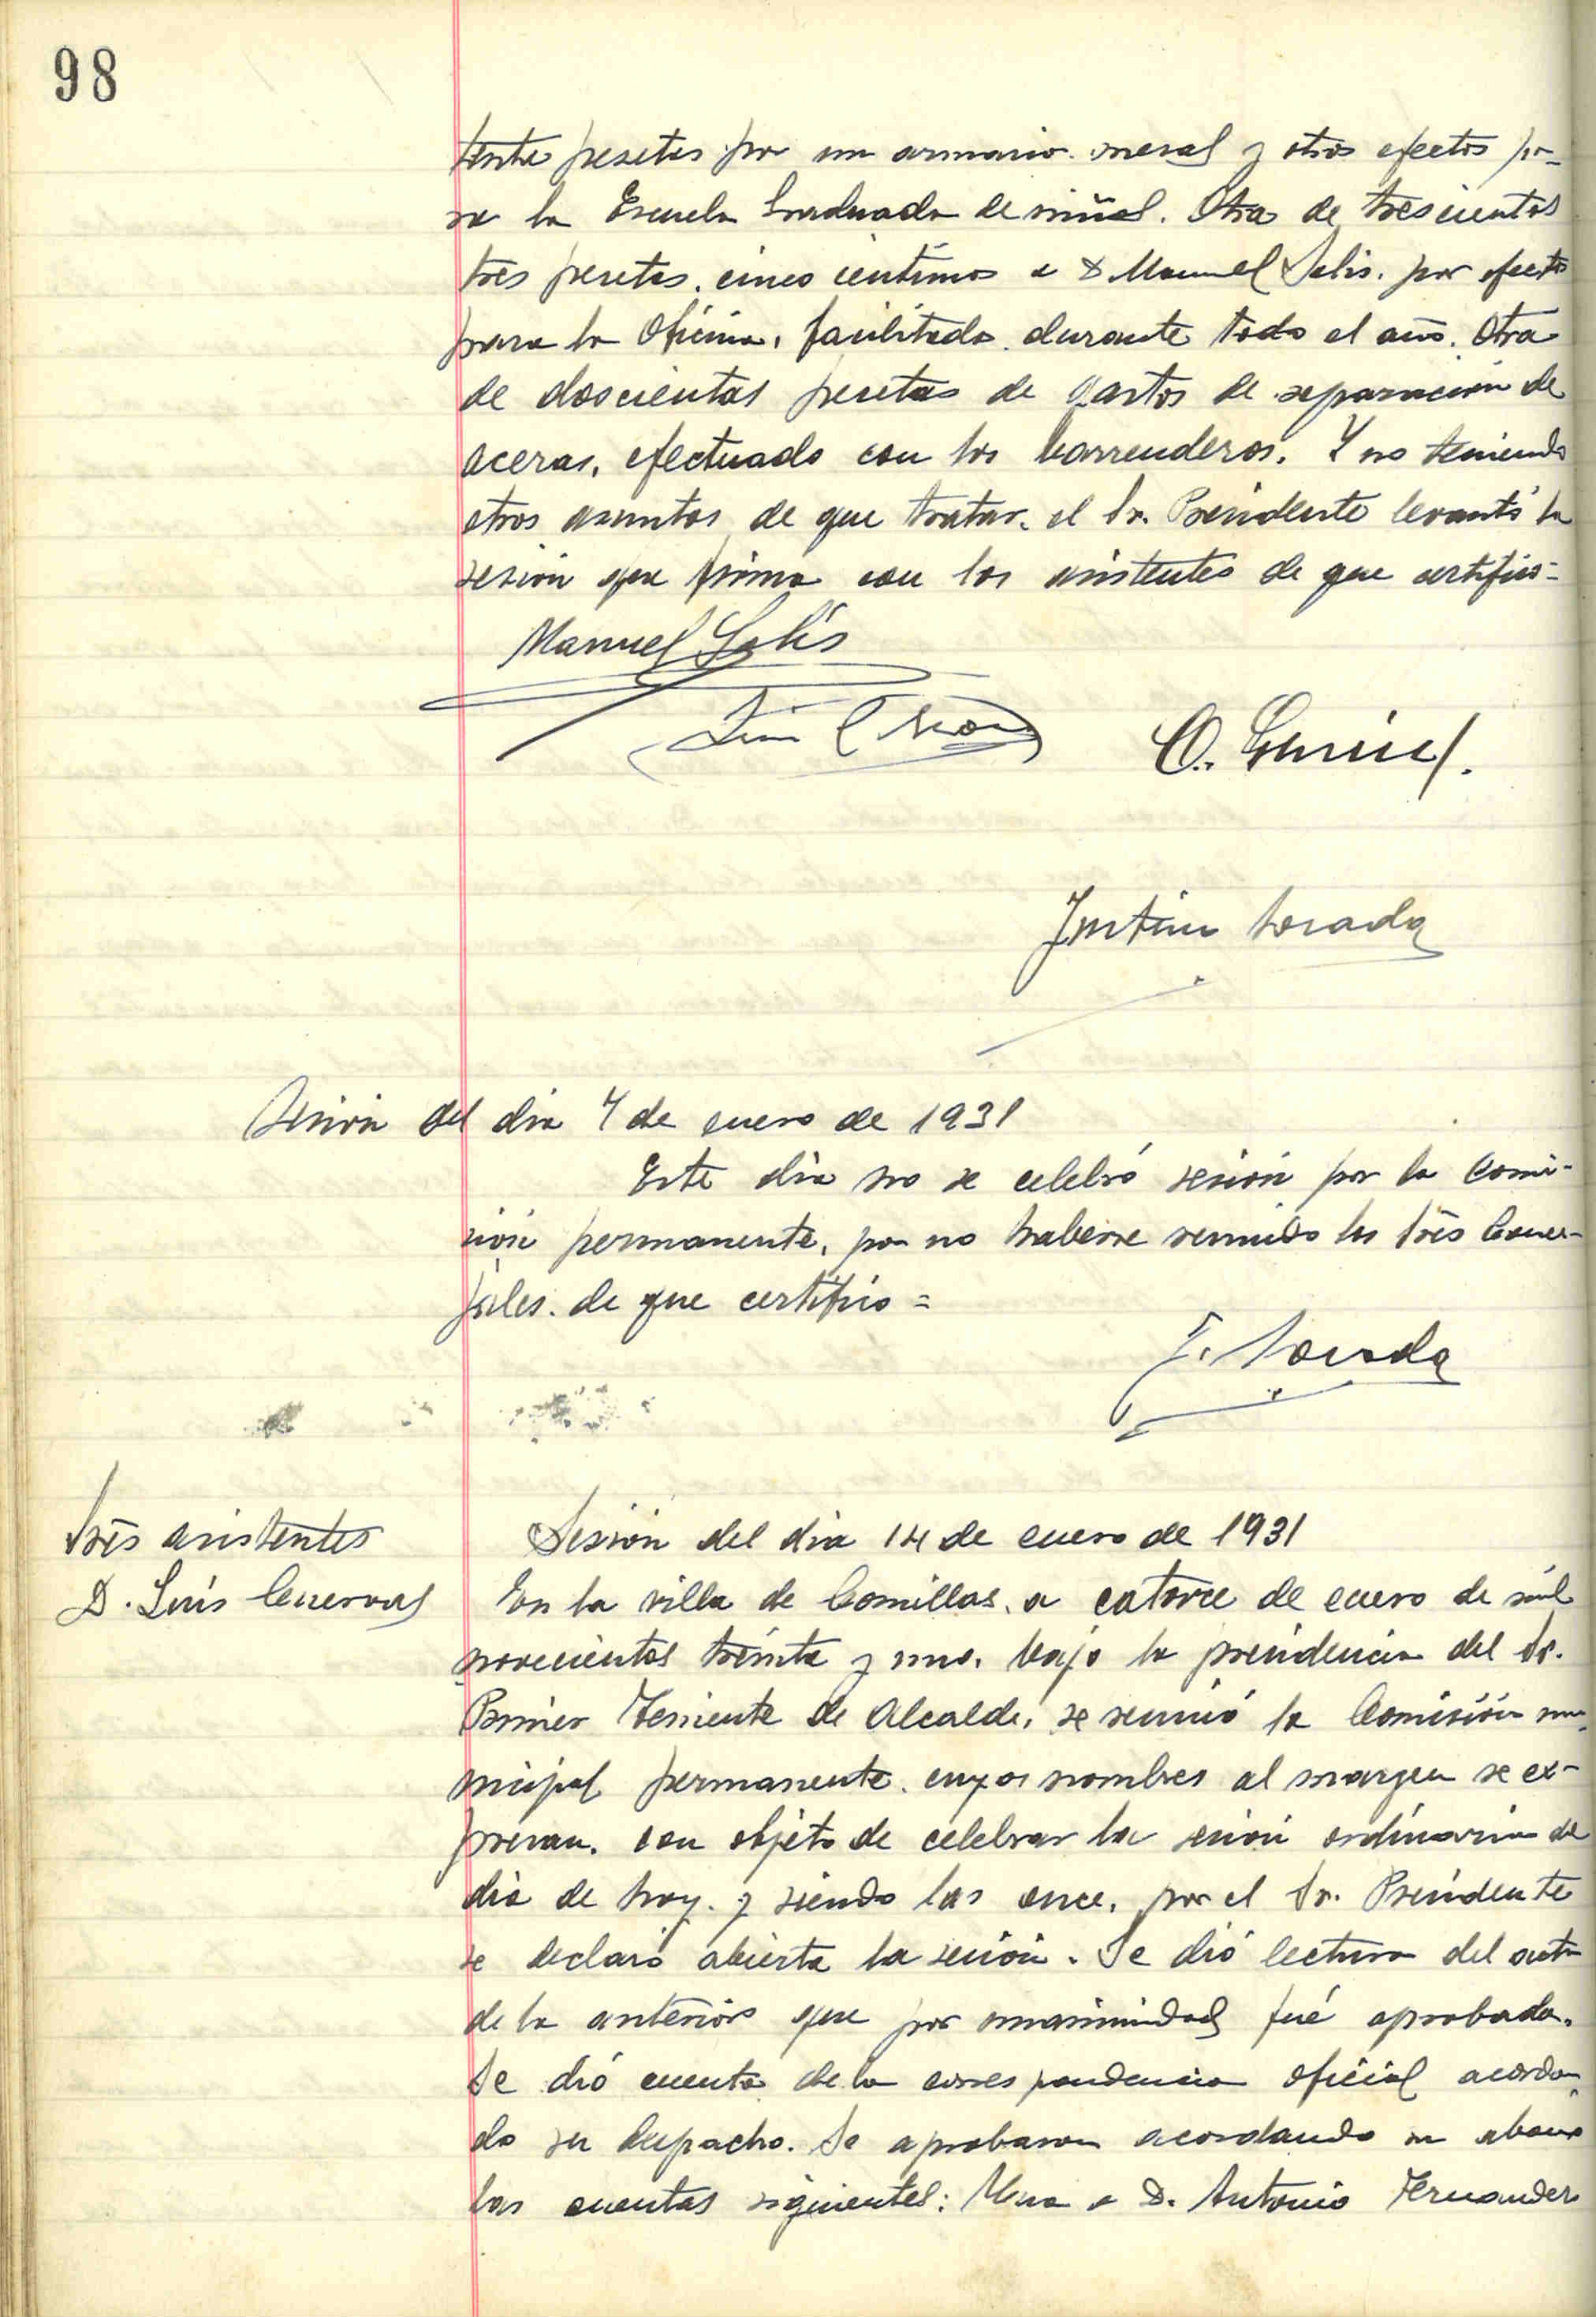 98
tenta pesetas por un armario meral y otros efectos pa-
ra la Escuela Graduada de niñas. Otra de trescientas
tres pesetas, cinco centimos a D Manuel Solis. por efectos
para la Oficina, facilitado durante todo el año. Otra
de doscientas pesetas de gastos de reparación de
aceras, efectuado con los barrenderos. Y no teniendo
otros asuntos de que tratar, el Sr. Presidente levantó la
sesión que firma con los asistentes de que certifico=
Manuel Solís
O.
Justino Losada
Sesión del dia 7 de enero de 1931
Este dia no se celebró sesión por la Comi-
sión permanente, por no haberse reunido los tres Conce-
jales. de que certifico =
J. Losada
Tres asistentes
D. Luís Cuervas
Sesión del dia 14 de enero de 1931
En la villa de Comillas, a catorce de enero de mil
novecientos treinta y uno, bajo la presidencia del Sr.
Primer Teniente de Alcalde, se reunió la Comisión mu-
nicipal permanente. cuyos nombres al margen se ex-
presan, con objeto de celebrar la sesión ordinaria del
dia de hoy. y siendo las once, por el Sr. Presidente
se declaró abierta la sesión. Se dió lectura del acta
de la anterior que por unanimidad fué aprobada.
Se dió cuenta de la correspondencia oficial acordan-
do su despacho. Se aprobaron acordando su abono
las cuentas siguientes: Una a D. Antonio Fernandez